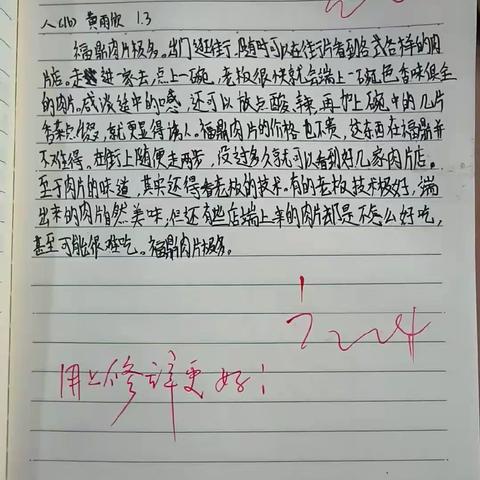 八(16) 黄雨欣 1.3
福鼎肉片极多。出门逛街,随时可以在街上看到各式各样的肉
片店。走进一家去,点上一碗,老板很快就会端上一碗色香味俱全
的肉片。咸淡适中的口感,还可以放点酸、辣,再加上碗中的几片
香菜点缀,就更显得诱人。福鼎肉片的价格也不贵,这东西在福鼎并
不难得,在街上随便走两步,没过多久就可以看到好几家肉片店。
至于肉片的味道,其实还得看老板的技术。有的老板技术极好,端
出来的肉片自然美味,但还有些店端上来的肉片却是不怎么好吃,
甚至可能很难吃。福鼎肉片极多。
用上修辞更好!